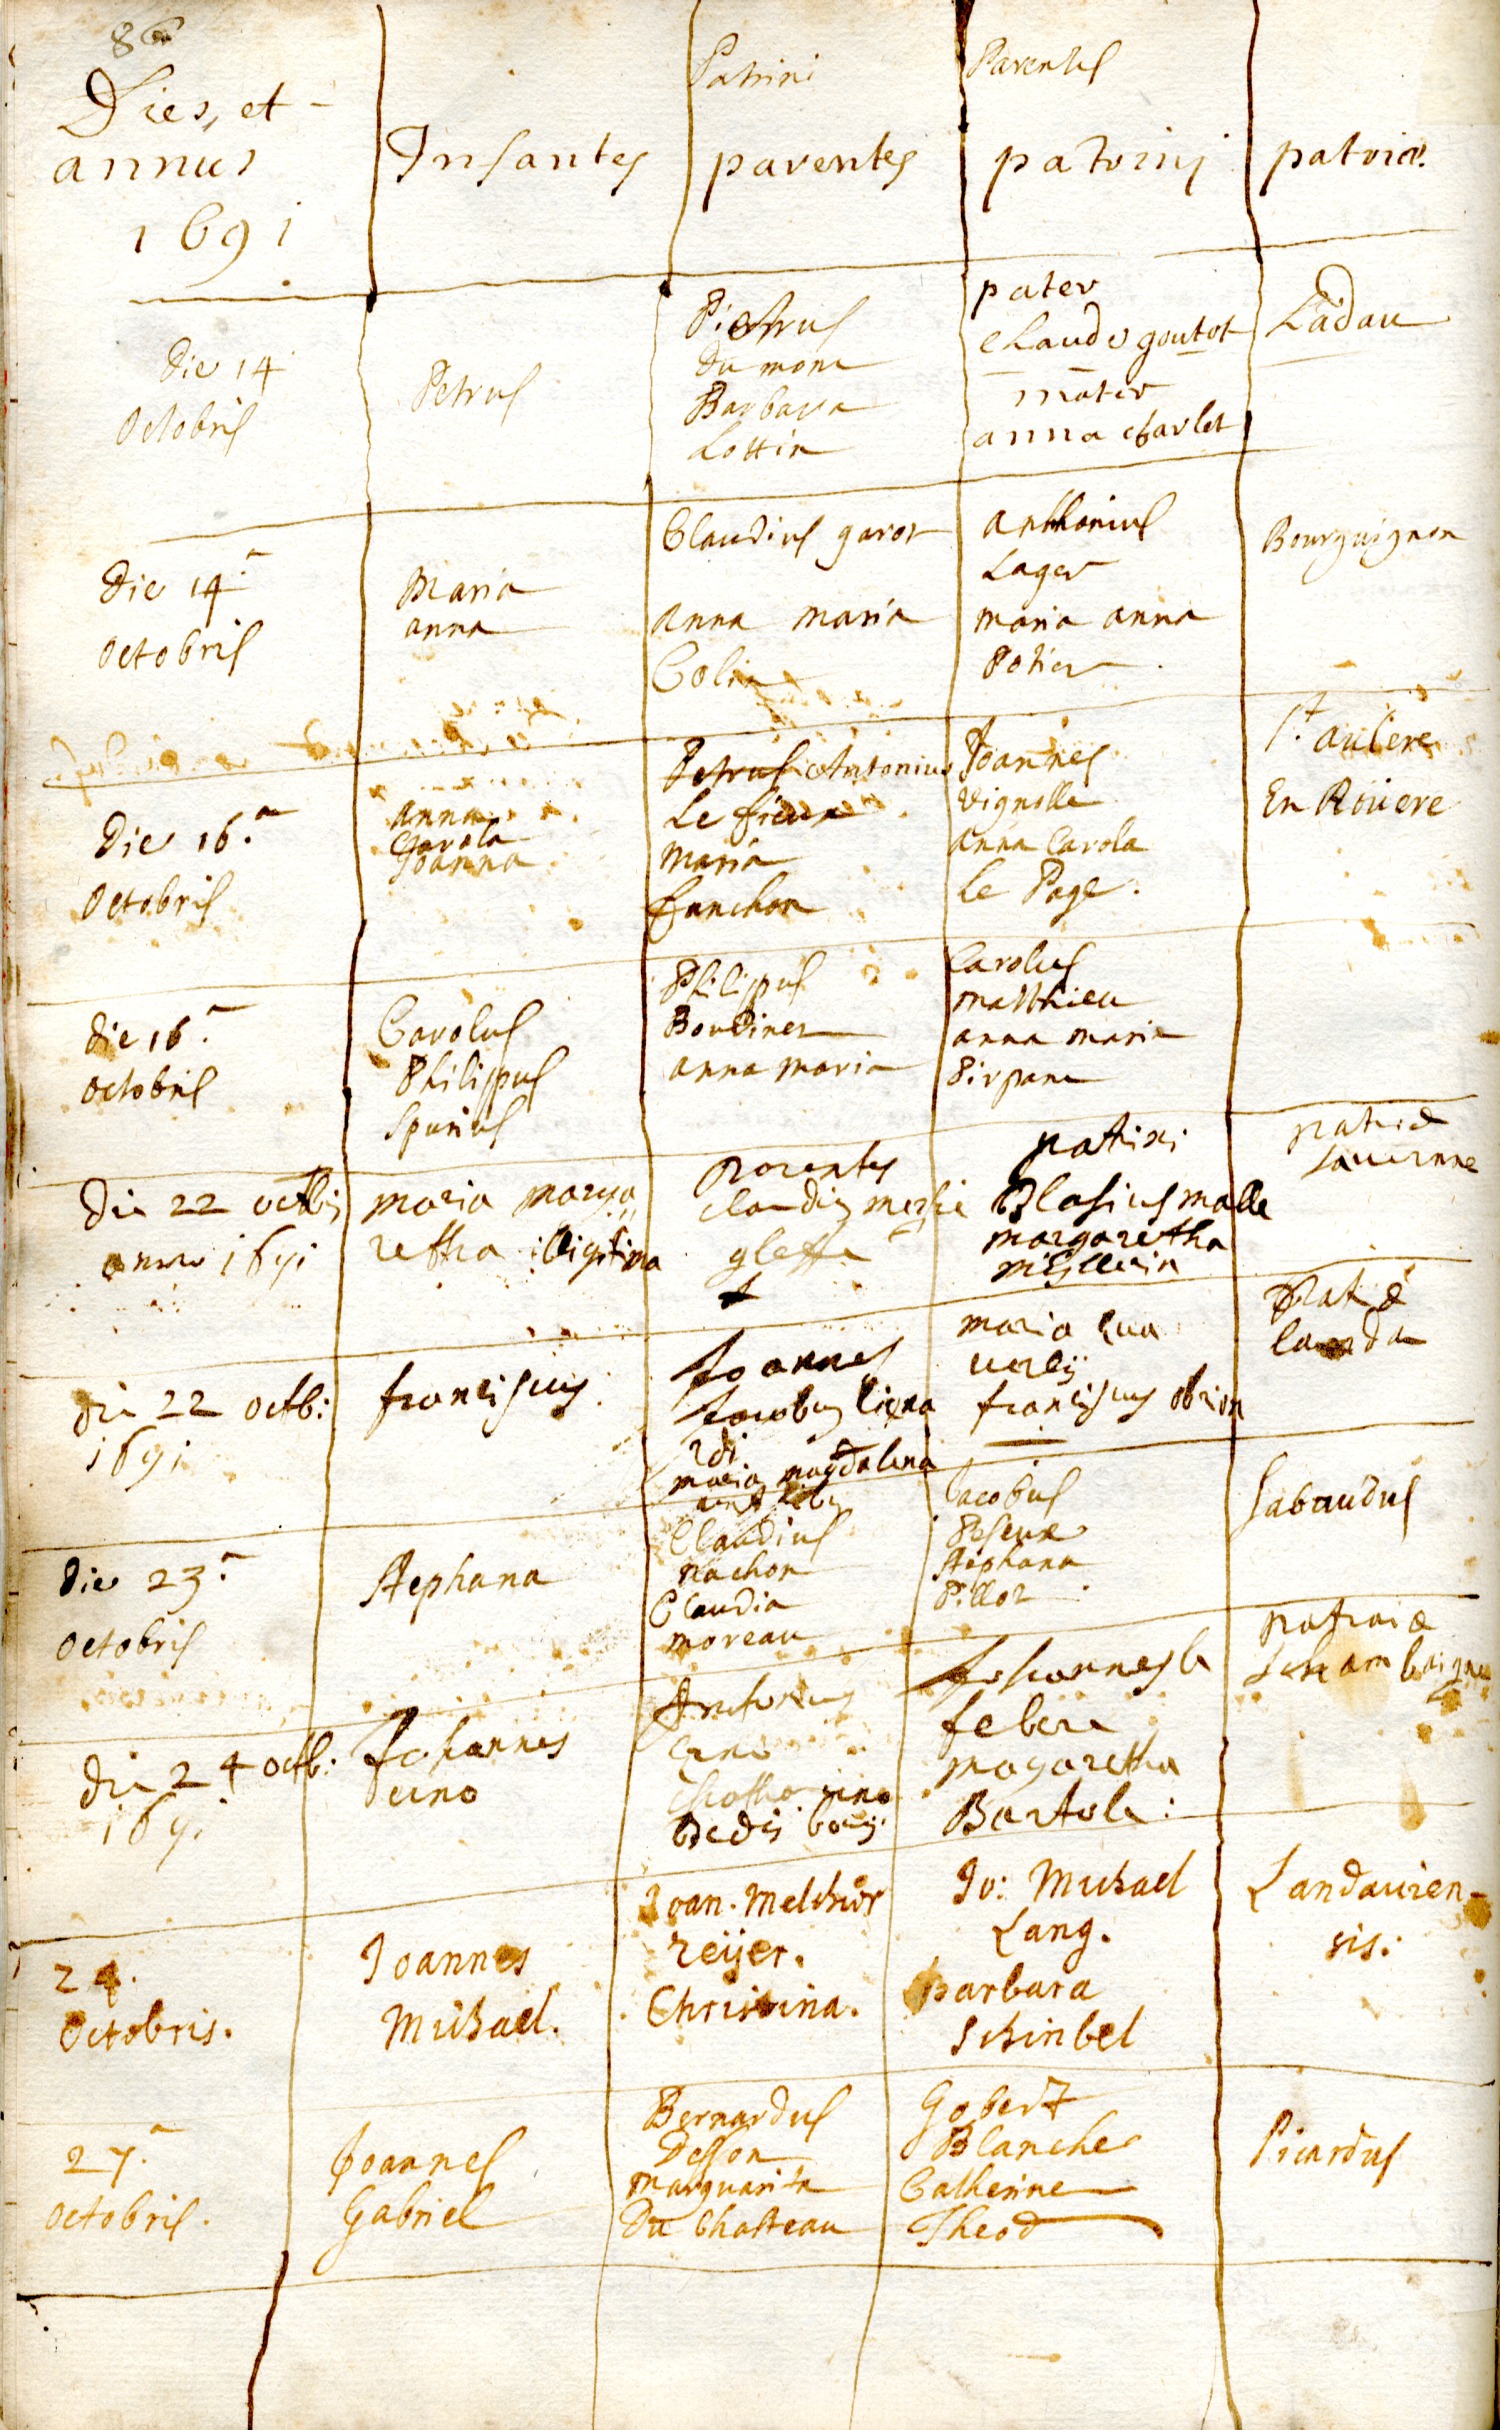 86
Dies, et
annus
1691
Infantes
Patrini
parentes
Parentes
patrinj
patria.
Die 14
Octobris
Petrus
Pietrus
du mont
Barbara
Lottin
pater
claude goutot
mater
anna charlet
Ladau
Die 14.a
Octobris
Maria
anna
Claudius garot
anna maria
Colin
anthonius
Lager
maria anna
Potier
Bourguignon
Die 16.a
Octobris
anna
Carola
Joanna
Petrus Antonius
Le fieux
maria
fanchon
Joannes
vignolle
anna Carola
Le Page.
St. aulere
En Rouere
die 16.a
octobris
Carolus
Philippus
Spurius
Philippus
Boudinet
anna maria
Carolus
Matthieu
anna maria
Pirpane
die 22 octbis
anno 1691
maria marga
retha illigitima
parentes
claudius
patrini
Blasius malle
margaretha
patriæ
die 22 octb:
1691
franciscus
Joannes
Jacobus liena
rdi
maria magdalena
maria
franciscus obrion
Patriæ
landa
Die 23.a
Octobris
Stephana
Claudius
Nachon
Claudia
moreau
Jacobus
Stephana
Pillot
Sabaudus
die 24 octb:
1691
Johannes
Antonius
Johannes le
febere
magaretha
Bartole:
patriæ
24.
Octobris.
Joannes
Michael.
Joan. Melchior
reijer.
Christina.
Jo: Michael
Lang.
parbara
Schinbel
Landavien-
sis.
27.a
octobris.
Joannes
Gabriel
Bernardus
Desson
Marguarita
Du Chasteau
Gobert
Blanche
Catherine
Theod
Picardus